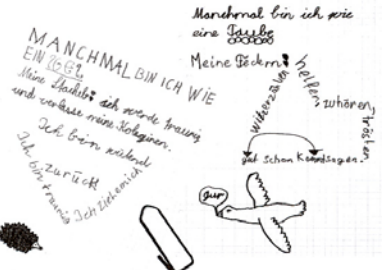 MANCHMAL BIN ICH WIE
EIN IGEL
Meine Stacheln: ich werde traurig
und verlasse meine Kolleginen.
Ich bin wütend
Ich bin traurig
Ich ziehe mich
zurück
Manchmal bin ich wie
eine Taube
Meine Federn:
witze erzählen
helfen,
zuhören,
trösten
gut schon Kommsagen.
gur